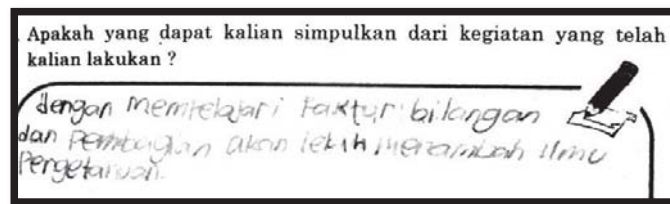 Apakah yang dapat kalian simpulkan dari kegiatan yang telah
kalian lakukan ?
dengan mempelajari faktur bilangan
dan pembagian akan lebih menambah ilmu
Pengetahuan.